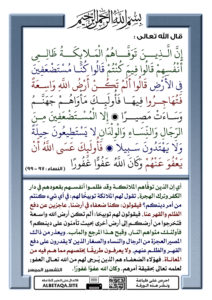 بسم الله الرحمن الرحيم
قال الله تعالى :
إِنَّ الَّذِينَ تَوَفَّاهُمُ الْمَلَائِكَةُ ظَالِمِي
أَنْفُسِهِمْ قَالُوا فِيمَ كُنْتُمْ قَالُوا كُنَّا مُسْتَضْعَفِينَ
فِي الْأَرْضِ قَالُوا أَلَمْ تَكُنْ أَرْضُ اللَّهِ وَاسِعَةً
فَتُهَاجِرُوا فِيهَا فَأُولَئِكَ مَأْوَاهُمْ جَهَنَّمُ
وَسَاءَتْ مَصِيرًا ۞ إِلَّا الْمُسْتَضْعَفِينَ مِنَ
الرِّجَالِ وَالنِّسَاءِ وَالْوِلْدَانِ لَا يَسْتَطِيعُونَ حِيلَةً
وَلَا يَهْتَدُونَ سَبِيلًا ۞ فَأُولَئِكَ عَسَى اللَّهُ أَنْ
يَعْفُوَ عَنْهُمْ وَكَانَ اللَّهُ عَفُوًّا غَفُورًا
[ النساء : ٩٧ - ٩٩ ]
أي إن الذين توفاهم الملائكة وقد ظلموا أنفسهم بقعودهم في دار
الكفر وترك الهجرة، تقول لهم الملائكة توبيخًا لهم: في أي شيء كنتم
من أمر دينكم؟ فيقولون: كنا ضعفاء في أرضنا، عاجزين عن دفع
الظلم والقهر عنا، فيقولون لهم توبيخا: ألم تكن أرض الله واسعة
فتخرجوا من أرضكم إلى أرض أخرى بحيث تأمنون على دينكم؟
فأولئك مثواهم النار، وقبح هذا المرجع والمآب. ويعذر من ذاك
المصير العجزة من الرجال والنساء والصغار الذين لا يقدرون على دفع
القهر والظلم عنهم، ولا يعرفون طريقًا يخلصهم مما هم فيه من
المعاناة. فهؤلاء الضعفاء هم الذين يُرجى لهم من الله تعالى العفو؛
لعلمه تعالى بحقيقة أمرهم. وكان الله عفوًا غفورًا.
التفسير الميسر
ALBETAQA.SITE